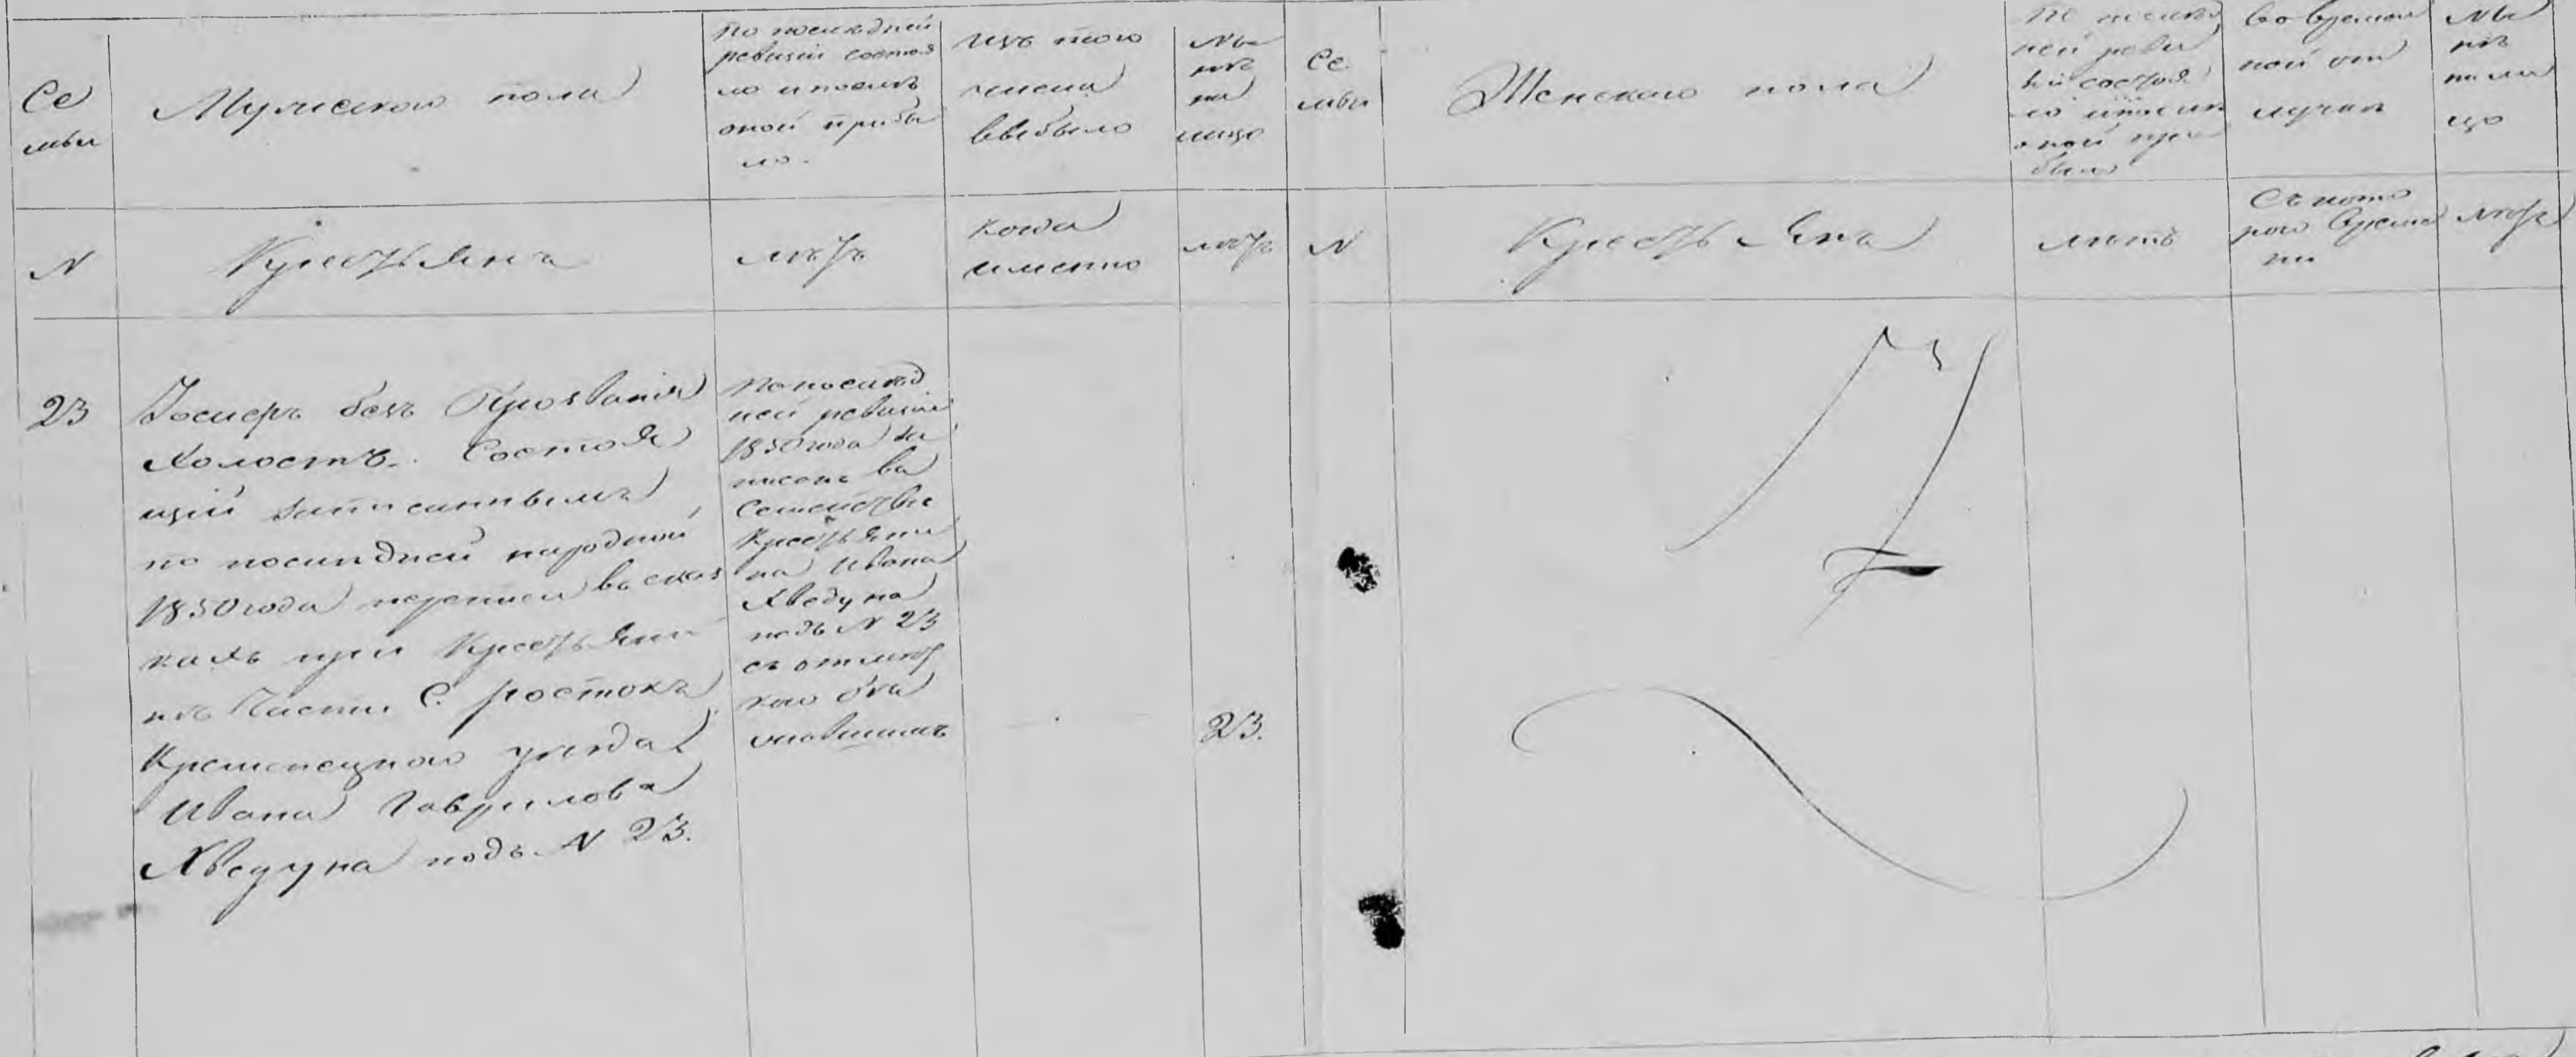 Се
мьи
Мужескаго пола
По последней
ревизіи состоя
ло и после
оной прибы
ло.
Изъ того
числа
выбыло
Ны
не
на
лицо
Се
мьи
Женскаго пола
По послед
ней реви
зіи состоя
ло и после
оной при
было
Во времен
ной от
лучке
Ны
не
на ли
цо
N
Крестьянъ
летъ
Когда
именно
летъ
N
Крестьянъ
летъ
Съ кото
раго Време
ни
летъ
23
Іосифъ безъ Прозванія
Холостъ. Состоя
щій Записаннымъ
по последней народной
1850 года переписи въ сказ
кахъ при Крестьяни
не Части С. Ростокъ
Кременецкаго уезда
Ивана Гаврилова
Хведуна подъ N 23.
По послед
ней ревизіи
1850 года за
писанъ въ
Семействе
Крестьяни
на Ивана
Хведуна
подъ N 23
съ отмет
кою
23.